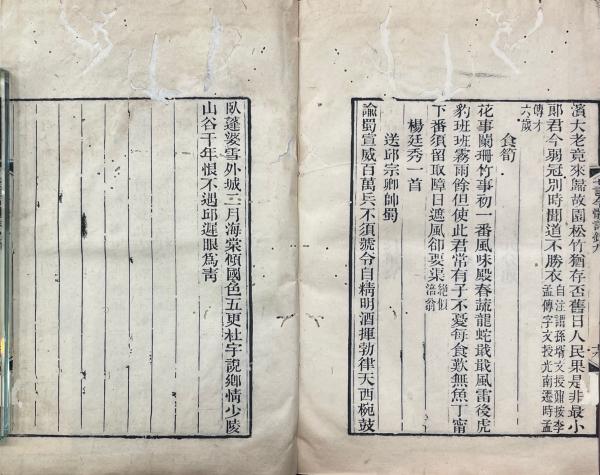 濱大老竟來歸故園松竹猶存否舊日人民果是非最小
郎君今弱冠别時聞道不勝衣自注謂孫壻文授鄭按李
孟傳字文授光南遷時孟
傳才
六歲
食筍
花事闌珊竹事初一番風味殿春蔬龍蛇戢戢風雷後虎
豹班班霧雨餘但使此君常有子不憂每食歎無魚丁甯
下番須留取障日遮風卻要渠絶似
涪翁
楊廷秀一首
送邱宗卿帥蜀
諭蜀宣威百萬兵不須號令自精明酒揮勃律天西椀鼓
臥蓬婆雪外城二月海棠傾國色五更杜宇說鄉情少陵
山谷千年恨不遇邱遲眼爲靑